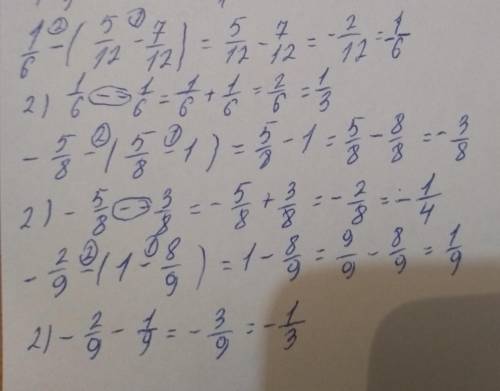 1/6 -② ( 5/12 -① 7/12 ) = 5/12 - 7/12 = - 2/12 = - 1/6
2) 1/6 - - 1/6 = 1/6 + 1/6 = 2/6 = 1/3
- 5/8 -② ( 5/8 -① 1 ) = 5/8 - 1 = 5/8 - 8/8 = - 3/8
2) - 5/8 - - 3/8 = - 5/8 + 3/8 = - 2/8 = - 1/4
- 2/9 -② ( 1 -① 8/9 ) = 1 - 8/9 = 9/9 - 8/9 = 1/9
2) - 2/9 - 1/9 = - 3/9 = - 1/3